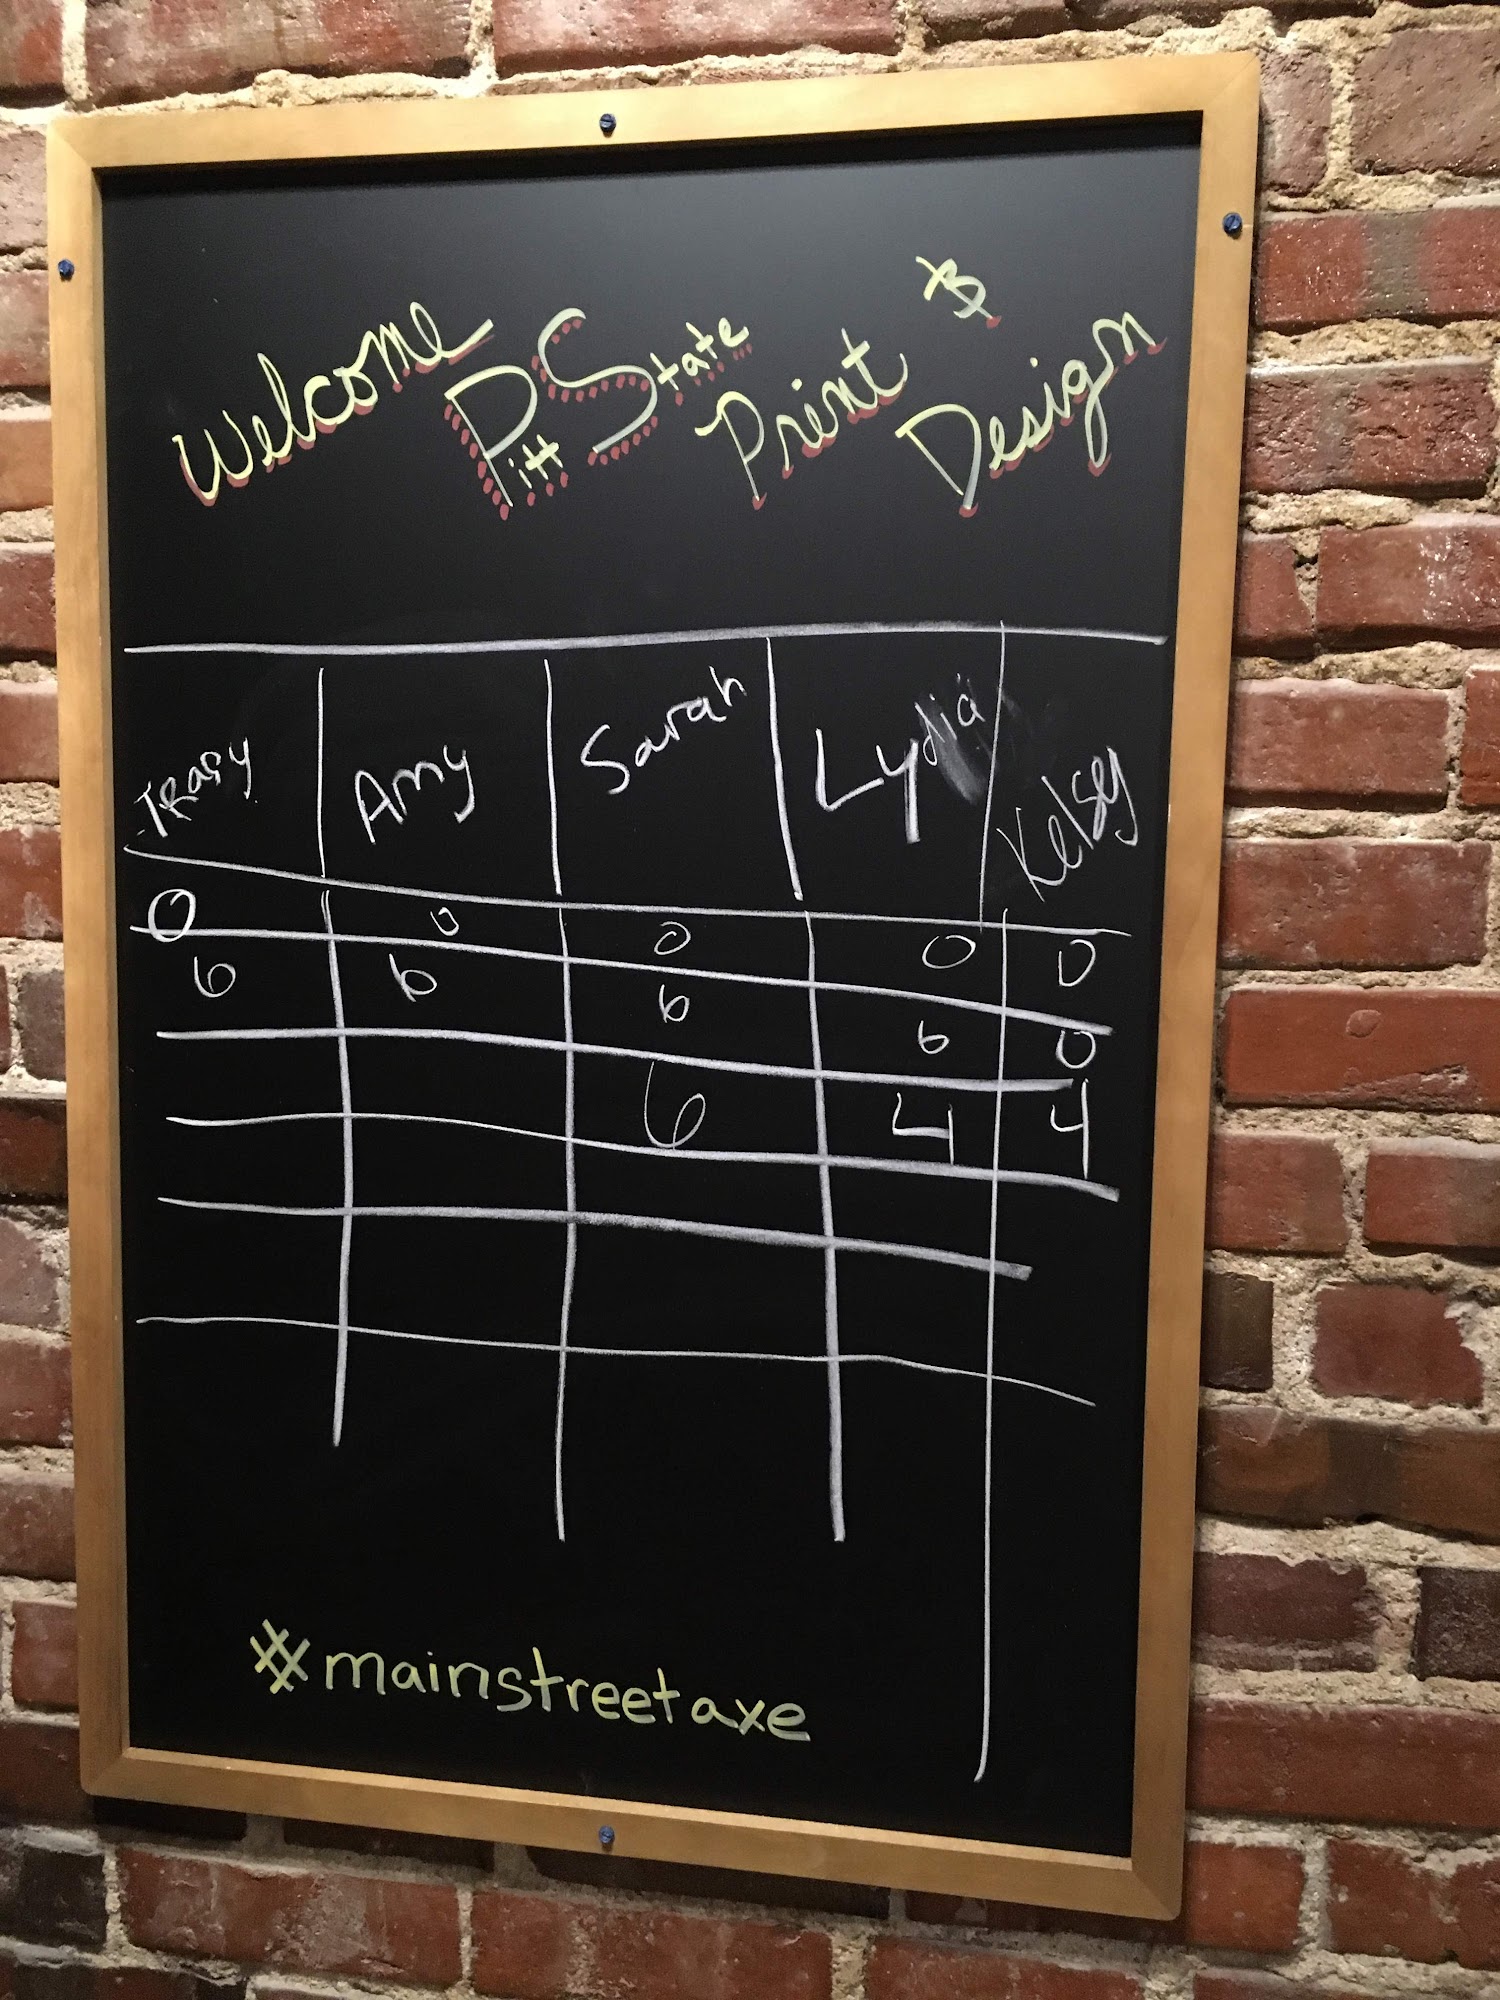 Welcome Pitt State Print &
Design
TRACY Amy Sarah Lydia Kelsey
0 0 0 0 0
6 6 6 6 0
6 4 4
#mainstreetaxe